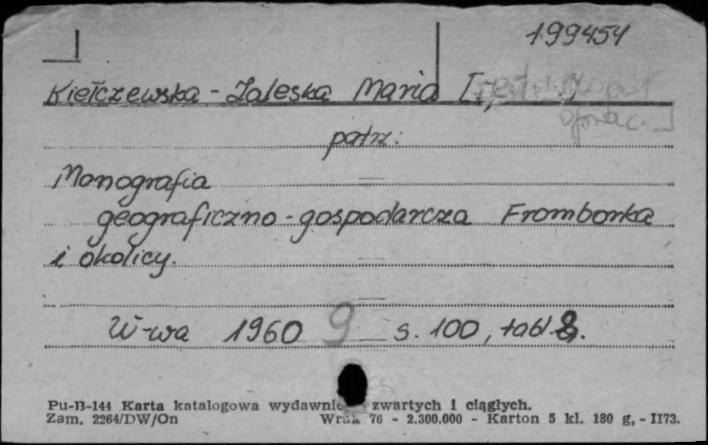 199454
Kiełczewska-Zaleska Maria [
oprac.]
patrz:
Monografia
geograficzno-gospodarcza Fromborka
i okolicy.
W-wa 1960 9 s. 100, tabl. 8.
Pu-B-144 Karta katalogowa wydawnic zwartych i ciągłych.
Zam. 2264/DW/On W 76 - 2.300.000 - Karton 5 kl. 180 g, - II73.